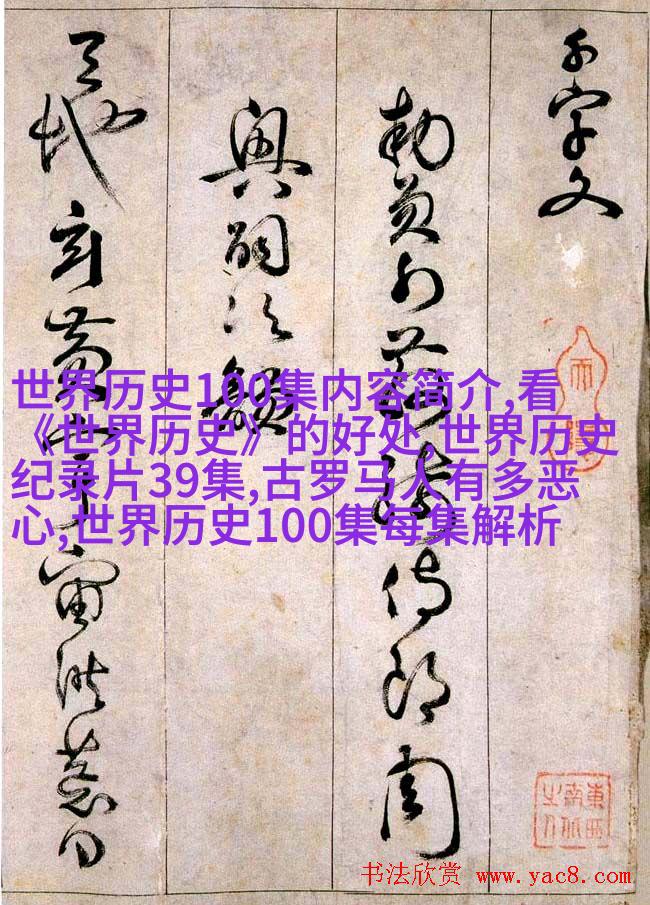 千字文
勅員外散騎侍郎周
興嗣次韻
天地玄黄宇宙洪荒日
世界历史100集内容简介,看
《世界历史》的好处,世界历史
纪录片39集,古罗马人有多恶
心,世界历史100集每集解析
東西
南北
之人
书法欣赏 www.yac8.com